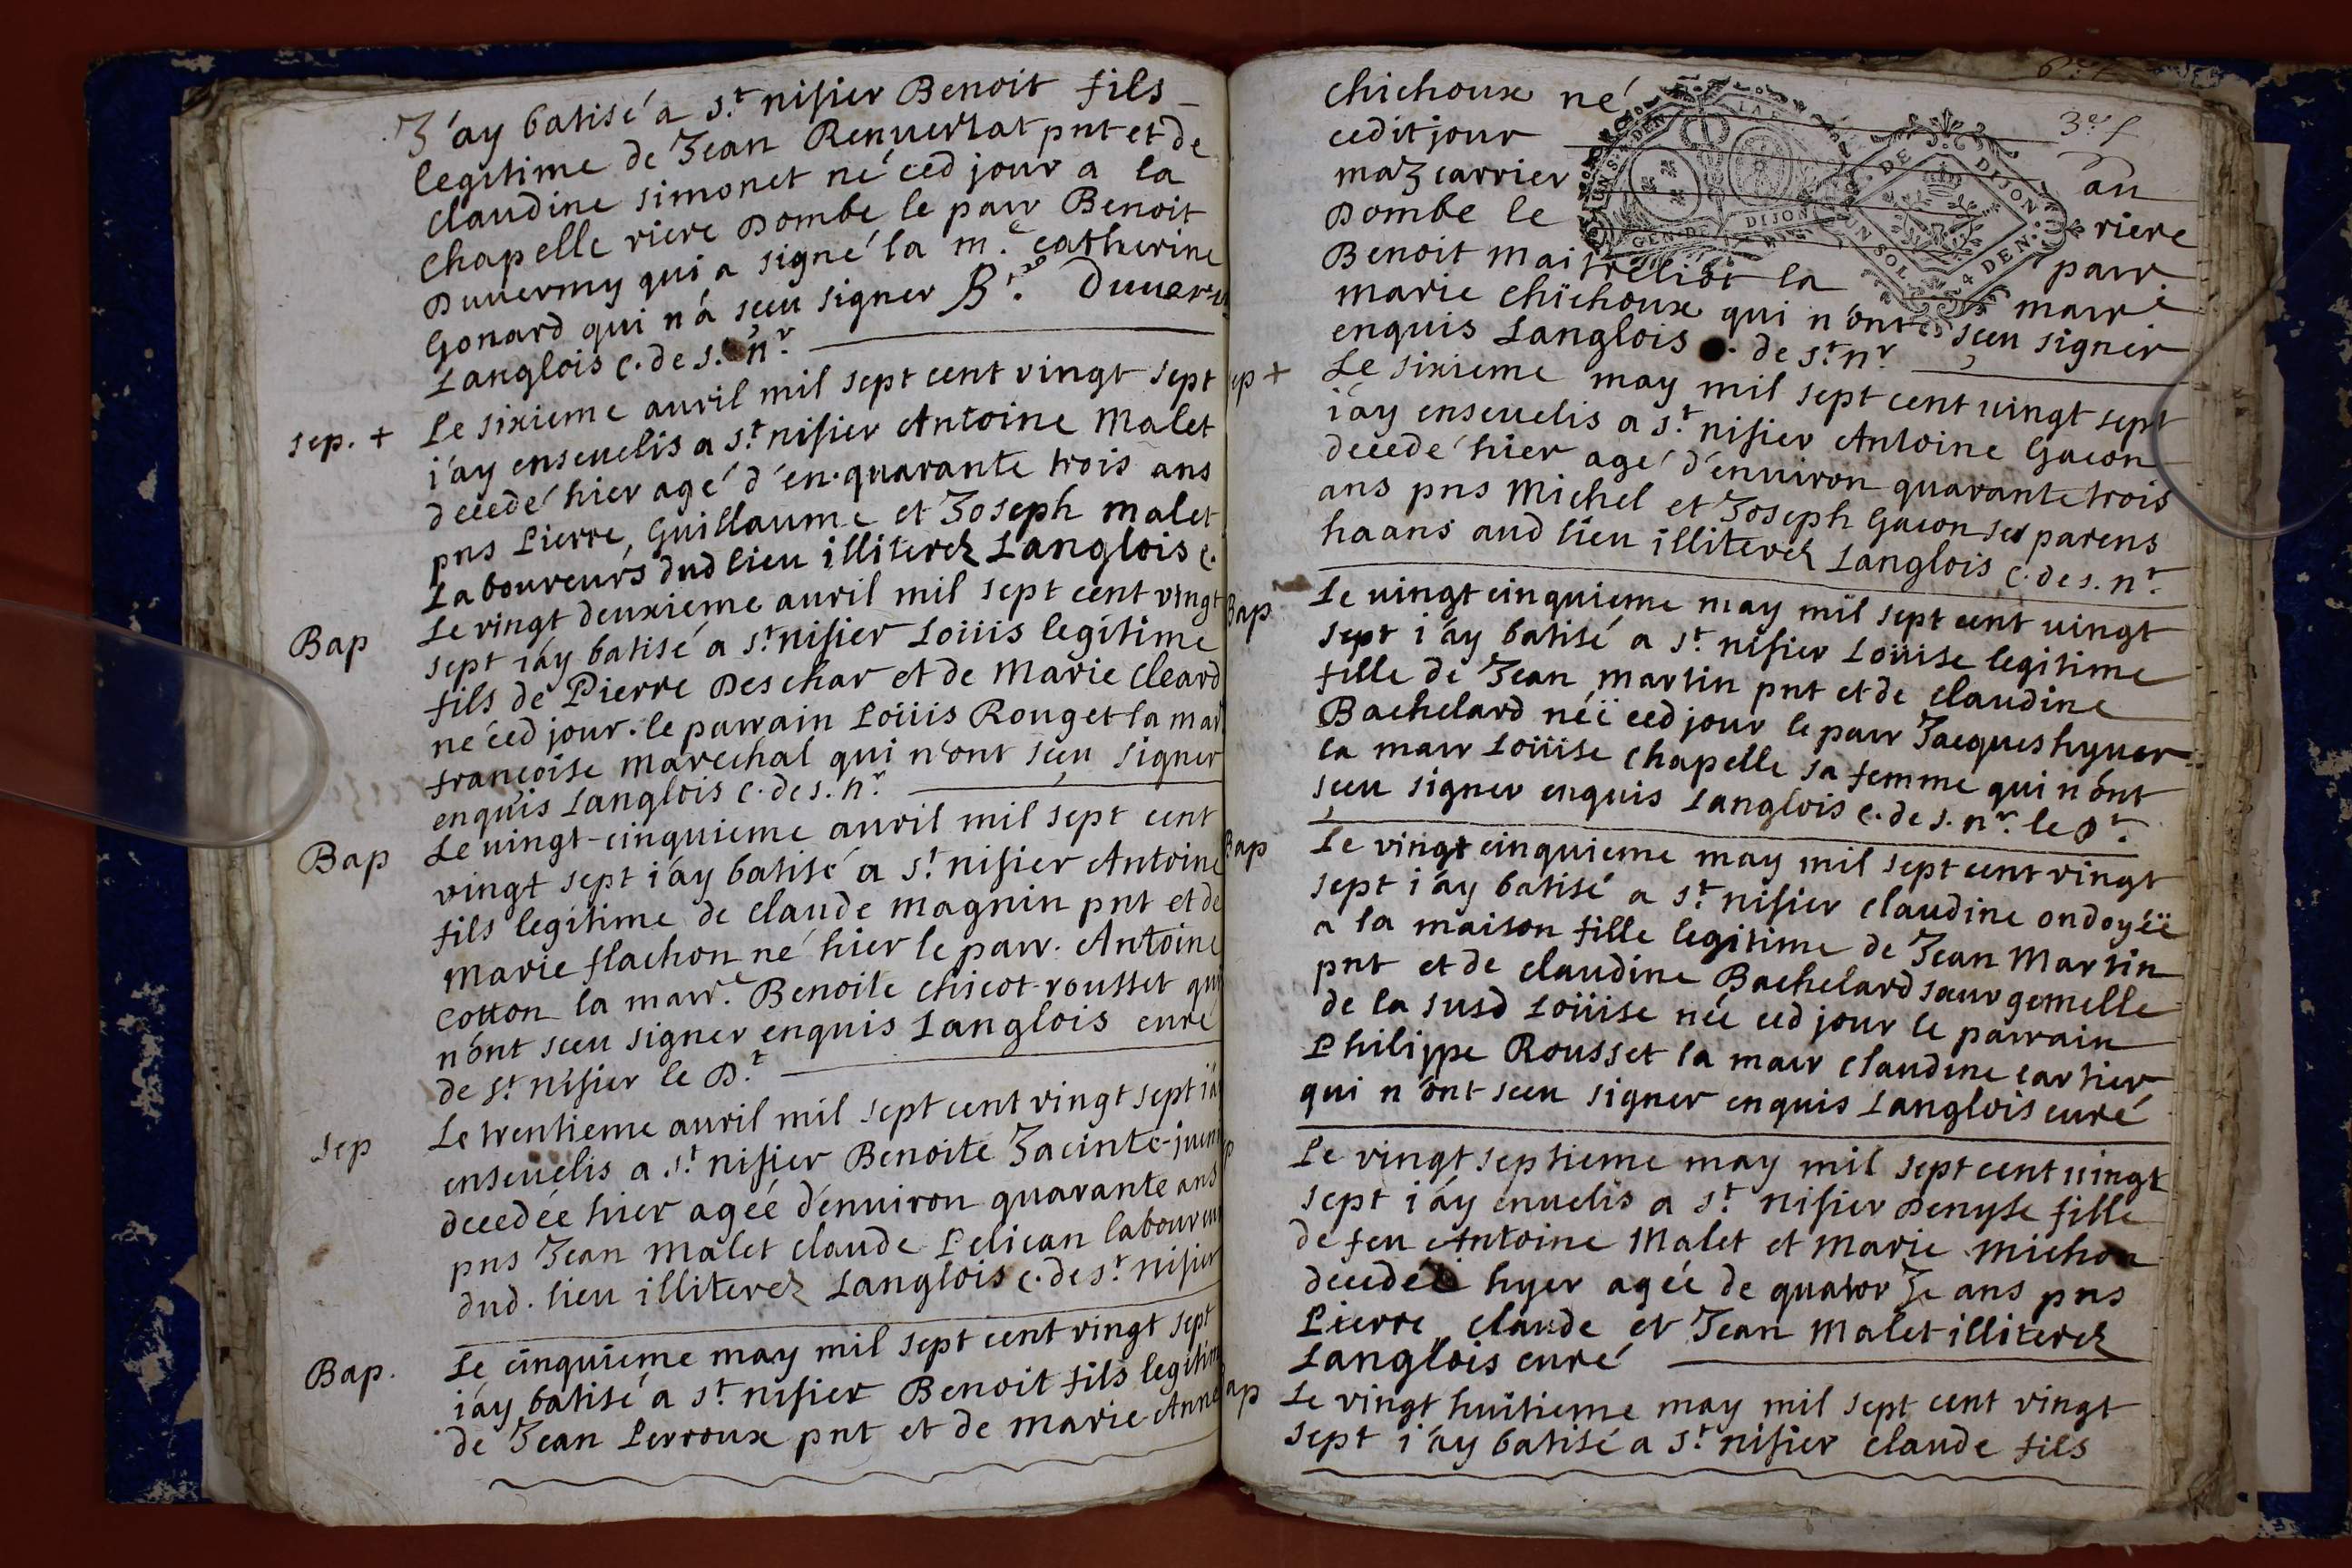 J'ay batisé a s.t nisier Benoit fils
legitime de Jean Renuersat pnt et de
claudine simonet né ced jour a la
chapelle riere Dombe le parr Benoit
Duuermy qui a signé la m.e catherine
Gonard qui n'a sceu signer B.t Duuerm
Langlois c. de s.t n.r
sep. + Le sixieme auril mil sept cent vingt sept
i'ay enseuelis a s.t nisier Antoine Malet
decedé hier agé d'en. quarante trois ans
pns Pierre, Guillaume et Joseph malet
Laboureurs dud lieu illiterez Langlois c.
Bap Le vingt deuxieme auril mil sept cent vingt
sept i'ay batisé a s.t nisier Loüis legitime
fils de Pierre Deschar et de Marie Cleard
né ced jour. le parrain Loüis Rouget la mar
francoise marechal qui n'ont sçeu signer
enquis Langlois c. de s. n.r
Bap Le uingt-cinquieme auril mil sept cent
vingt sept i'ay batisé a s.t nisier Antoine
fils legitime de claude magnin pnt et de
Marie flachon né hier le parr. Antoine
Cotton la marr.e Benoite chicot-rousset qui
n'ont sceu signer enquis Langlois curé
de s.t nisier le D.t
sep Le trentieme auril mil sept cent vingt sept i'ay
enseuelis a s.t nisier Benoite Jacinte-
decedée hier agée d'enuiron quarante ans
pns Jean Malet claude Pelican laboureur
dud. lieu illiterez Langlois c. de s.t nisier
Bap. Le cinquieme may mil sept cent vingt sept
i'ay batisé a s.t nisier Benoit fils legitime
de Jean Perroux pnt et de marie Anne
3e f
chichoux né
cedit jour au
maz carrier riere
Dombe le parr
Benoit maitrelibt la marr.e
marie chichoux qui n'ont sceu signer
enquis Langlois c. de s.t n.r
ep + Le sixieme may mil sept cent uingt sept
i'ay enseuelis a s.t nisier Antoine Gacon
decedé hier agé d'enuiron quarante trois
ans pns Michel et Joseph Gacon ses parens
haans aud lieu illiterez Langlois c. de s. n.r
Bap Le uingt cinquieme may mil sept cent uingt
sept i'ay batisé a s.t nisier Loüise legitime
fille de Jean martin pnt et de claudine
Bachelard néë ced jour le parr Jacques hyuer
la marr Loüise chapelle sa femme qui n'ont
sceu signer enquis Langlois c. de s. n.r le D.t
Bap Le vingt cinquieme may mil sept cent vingt
sept i'ay batisé a s.t nisier claudine ondoyéë
a la maison fille legitime de Jean Martin
pnt et de claudine Bachelard sœur gemelle
de la susd Loüise née ced jour le parrain
Philippe Rousset la marr claudine cartier
qui n'ont sceu signer enquis Langlois curé
Le vingt septieme may mil sept cent uingt
sept i'ay enuelis a s.t nisier Denyse fille
de feu Antoine Malet et Marie Michon
decedée hyer agée de quatorze ans pns
Pierre, claude et Jean Malet illiterez
Langlois curé
ap Le vingt huitieme may mil sept cent vingt
sept i'ay batisé a s.t nisier claude fils
GEN. DE DIJON
UN SOL 4 DEN.
G. DE DIJON